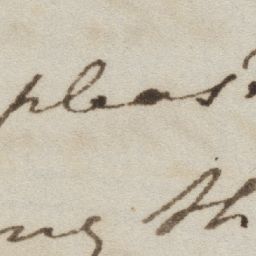 pleas
ng th